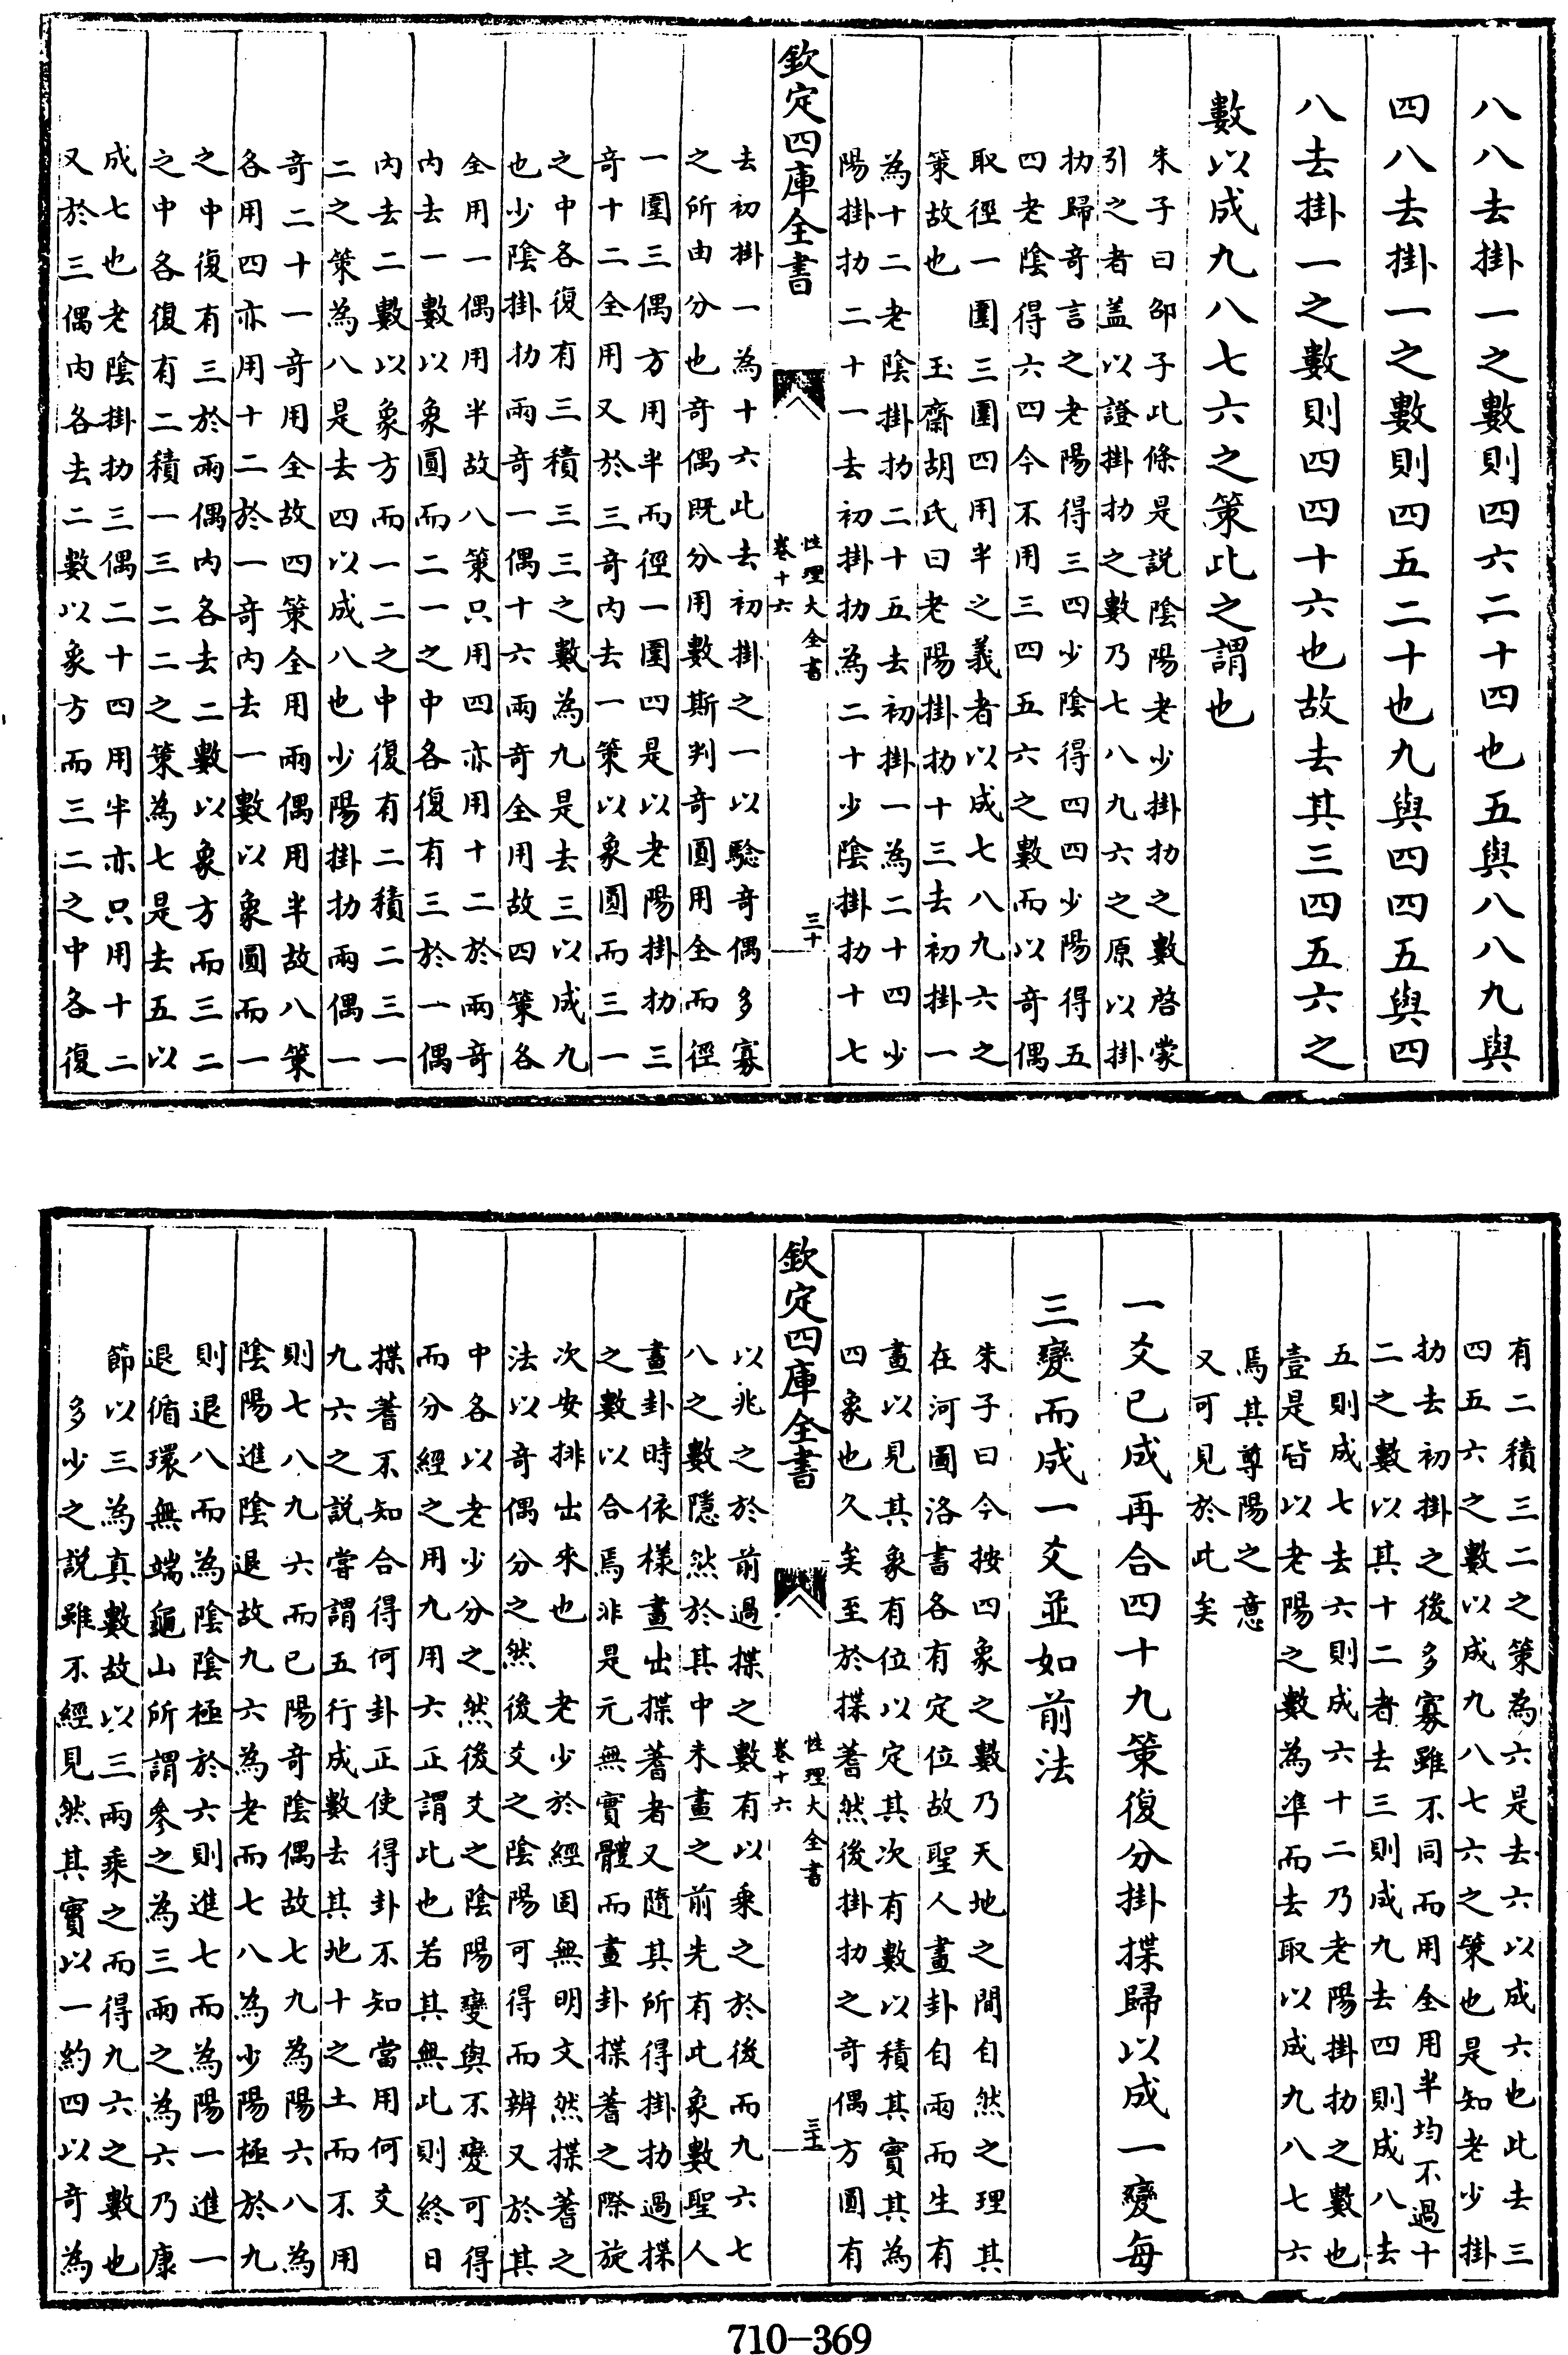 八八去掛一之數則四六二十四也五與八八九與
四八去掛一之數則四五二十也九與四四五與四
八去掛一之數則四四十六也故去其三四五六之
數以成九八七六之策此之謂也
朱子曰邵子此條是説陰陽老少掛扐之數啓蒙
引之者盖以證掛扐之數乃七八九六之原以掛
扐歸奇言之老陽得三四少陰得四四少陽得五
四老陰得六四今不用三四五六之數而以奇偶
取徑一圍三圍四用半之義者以成七八九六之
策故也 玉齋胡氏曰老陽掛扐十三去初掛一
為十二老陰掛扐二十五去初掛一為二十四少
陽掛扐二十一去初掛扐為二十少陰掛扐十七
欽定四庫全書
性理大全書
卷十六
三十
去初掛一為十六此去初掛之一以驗奇偶多寡
之所由分也奇偶既分用數斯判奇圓用全而徑
一圍三偶方用半而徑一圍四是以老陽掛扐三
奇十二全用又於三奇内去一策以象圓而三一
之中各復有三積三三之數為九是去三以成九
也少陰掛扐兩奇一偶十六兩奇全用故四策各
全用一偶用半故八策只用四亦用十二於兩奇
内去一數以象圓而二一之中各復有三於一偶
内去二數以象方而一二之中復有二積二三一
二之策為八是去四以成八也少陽掛扐兩偶一
奇二十一奇用全故四策全用兩偶用半故八策
各用四亦用十二於一奇内去一數以象圓而一
之中復有三於兩偶内各去二數以象方而三二
之中各復有二積一三二二之策為七是去五以
成七也老陰掛扐三偶二十四用半亦只用十二
又於三偶内各去二數以象方而三二之中各復
有二積三二之策為六是去六以成六也此去三
四五六之數以成九八七六之策也是知老少掛
扐去初掛之後多寡雖不同而用全用半均不過十
二之數以其十二者去三則成九去四則成八去
五則成七去六則成六十二乃老陽掛扐之數也
壹是皆以老陽之數為凖而去取以成九八七六
焉其尊陽之意
又可見於此矣
一爻已成再合四十九策復分掛揲歸以成一變每
三變而成一爻並如前法
朱子曰今按四象之數乃天地之間自然之理其
在河圖洛書各有定位故聖人畫卦自兩而生有
畫以見其象有位以定其次有數以積其實其為
四象也久矣至於揲蓍然後掛扐之奇偶方圓有
欽定四庫全書
性理大全書
卷十六
三十一
以兆之於前過揲之數有以乘之於後而九六七
八之數隱然於其中未畫之前先有此象數聖人
畫卦時依樣畫出揲蓍者又隨其所得掛扐過揲
之數以合焉非是元無實體而畫卦揲蓍之際旋
次安排出來也 老少於經固無明文然揲蓍之
法以奇偶分之然後爻之陰陽可得而辨又於其
中各以老少分之然後爻之陰陽變與不變可得
而分經之用九用六正謂此也若其無此則終日
揲蓍不知合得何卦正使得卦不知當用何爻
九六之説嘗謂五行成數去其地十之土而不用
則七八九六而已陽奇陰偶故七九為陽六八為
陰陽進陰退故九六為老而七八為少陽極於九
則退八而為陰陰極於六則進七而為陽一進一
退循環無端龜山所謂參之為三兩之為六乃康
節以三為真數故以三兩乘之而得九六之數也
多少之説雖不經見然其實以一約四以奇為
710-369